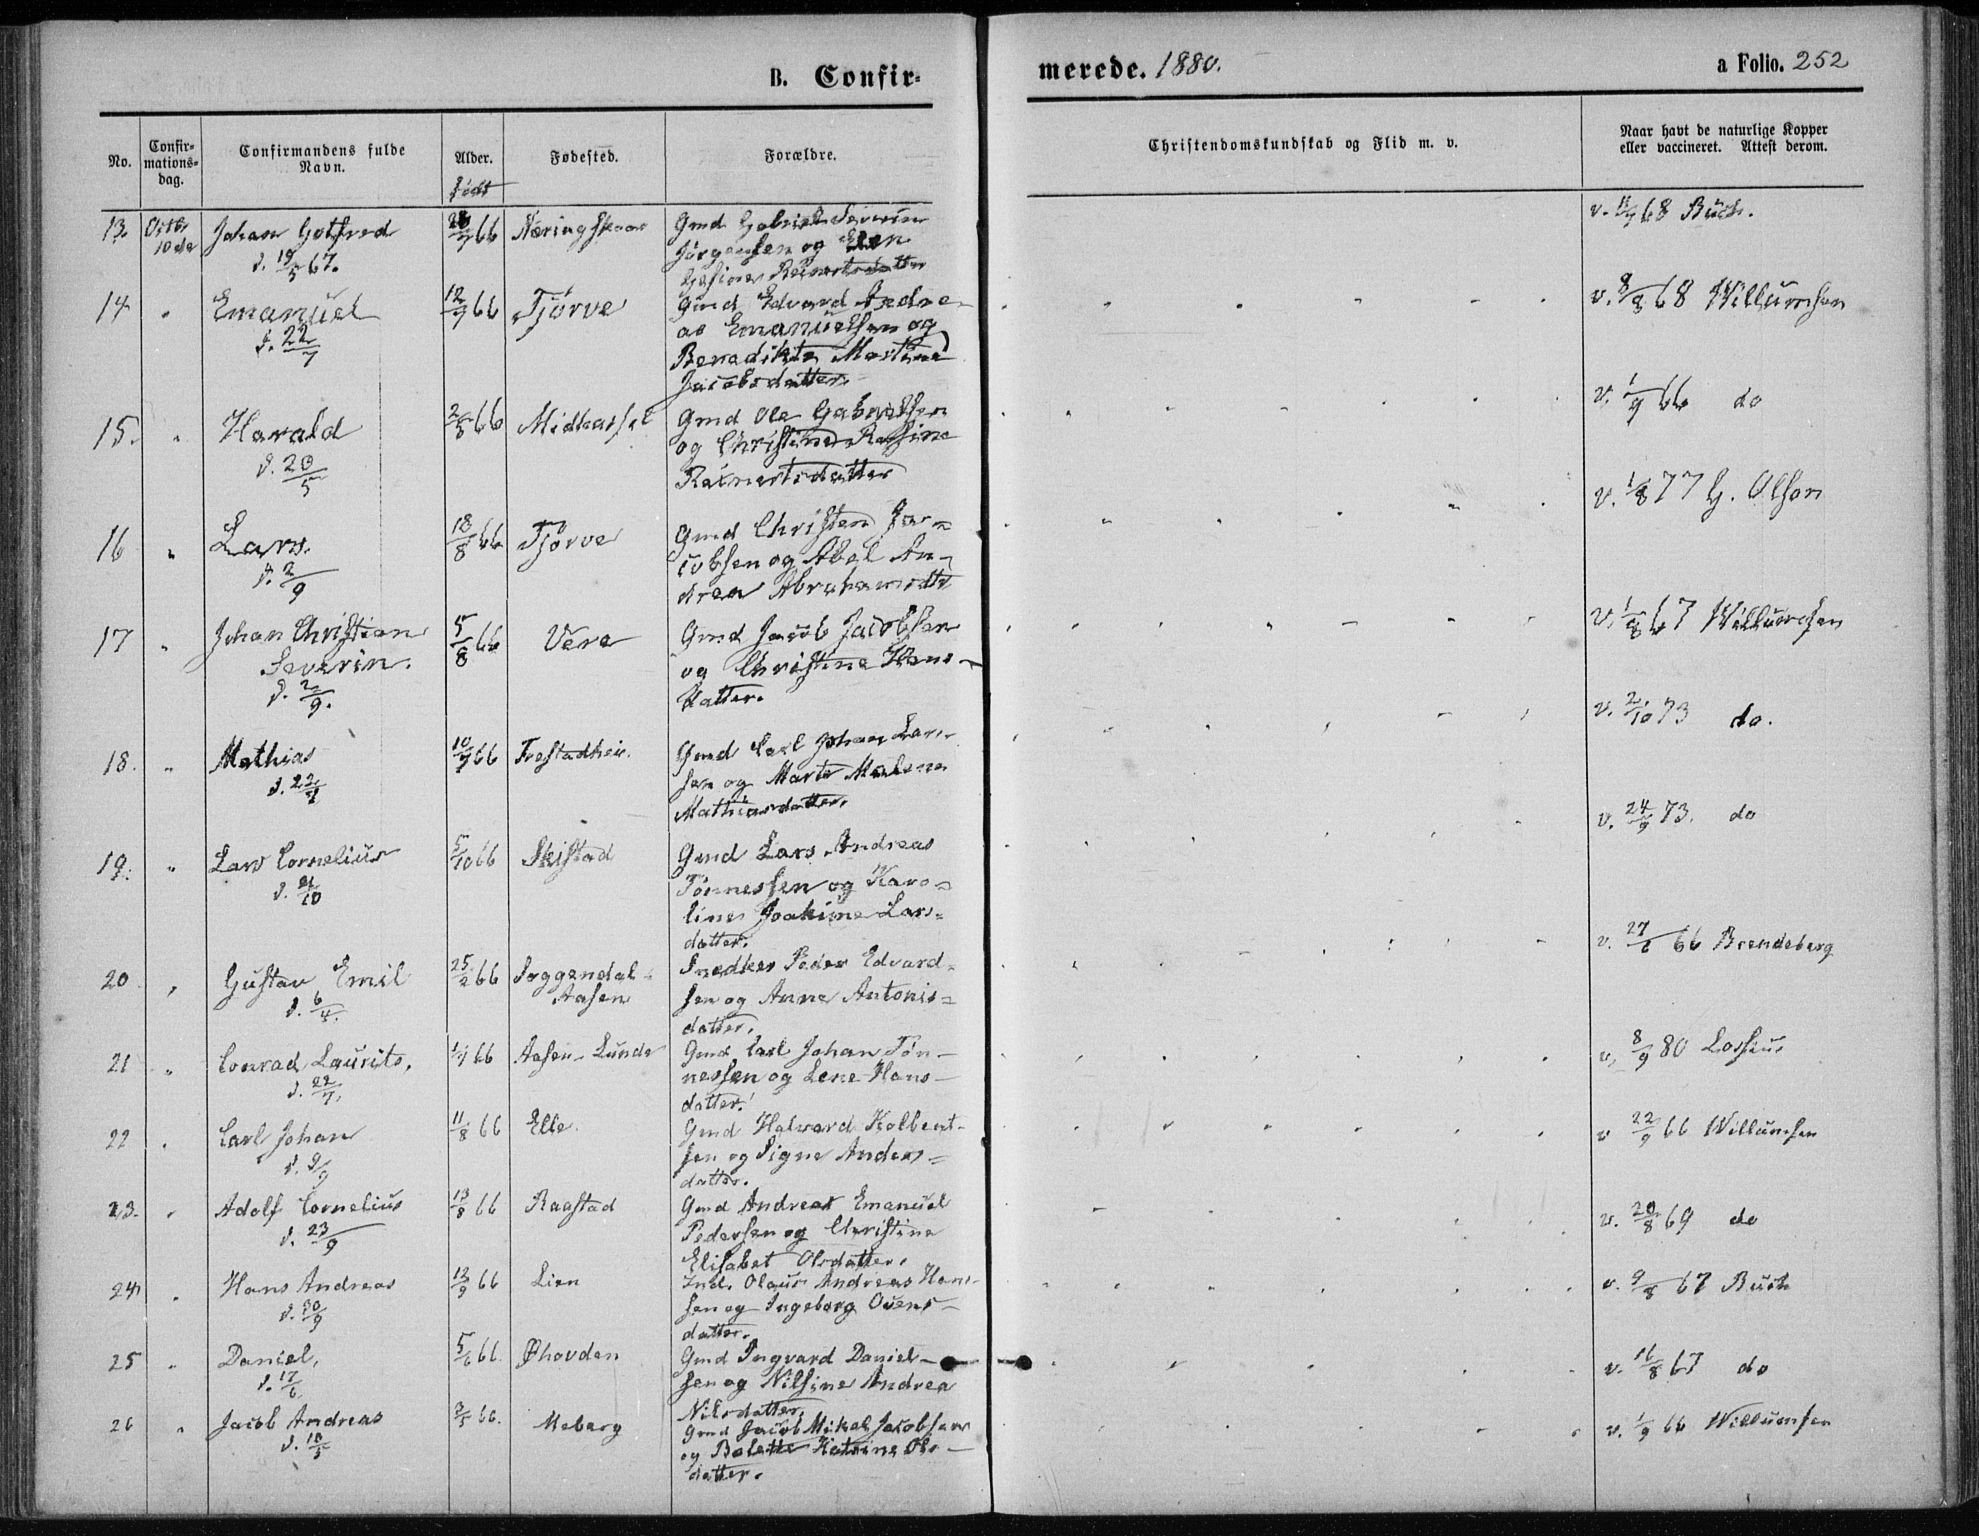 B. Confir-
merede. 1880.
a Folio. 252
No. Confir-mations-dag. Confirmandens fulde Navn. Alder. Født Fødested. Forældre. Christendomskundskab og Flid m. v. Naar havt de naturlige Kopper eller vaccineret. Attest derom.
13. Octbr 10de Johan Gotfred 66 Gmd Gabriel Severin v. 68 Buch.
d. 19/5 67. Jørgensen og Elen
Reinertsdatter
14 " Emanuel 12/7 66 Tjørve Gmd Edvard Andre- v. 8/8 68 Willumsen
d. 22/7 as Emanuelsen og
Benedikte Martine
Jacobsdatter
15. " Harald 2/5 66 Midhassel Gmd Ole Gabrielsen v. 1/9 66 do
d. 20/5 og Christine Rasine
Reinertsdatter
16 " Lars. 18/8 66 Tjørve Gmd Christen Ja- v. 1/8 77 G. Olsen
d. 2/9 cobsen og Abel An-
drea Abrahamsdtr
17 " Johan Christian 5/8 66 Vere Gmd Jacob Jacobsen v. 1/8 67 Willumsen
Severin. og Christine Hans-
d. 2/9. datter.
18. " Mathias 10/7 66 Gmd Carl Johan Lar- v. 2/10 73 do.
d. 22/7 sen og Marte Malene
Mathiasdatter.
19. " Lars Cornelius 5/10 66 Skistad Gmd Lars Andreas v. 24/9 73. do
d. 21/10 Tønnessen og Karo-
line Joakime Lars-
datter.
20 " Gustav Emil 25/2 66 Soggendal- Snedker Peder Edvard- v. 27/6 66 Brendeberg
d. 6/4. Aasen sen og Anne Antonis-
datter.
21 " Conrad Laurits. 1/7 66 Aasen-Lunde Gmd Carl Johan Tøn- v. 8/9 80 Lossius
d. 22/7. nessen og Lene Hans-
datter.
22 " Carl Johan 11/8 66 Elle. Gmd Halvard Kolbent- v 22/9 66 Willumsen
d. 9/9 sen og Signe Anders-
datter.
23. " Adolf Cornelius 13/8 66 Raastad Gmd Andreas Emanuel v. 20/8 69 do
d. 23/9 Pedersen og Christine
Elisabet Olsdatter.
24 " Hans Andreas 12/9 66 Lien Ind. Olaus Andreas Han- v. 9/8 67 Buch
d. 30/9 sen og Ingeborg Ovens-
datter.
25 " Daniel, 5/6 66. Øhovden Gmd Ingvard Daniel- v. 16/8 67 do
d. 17/6 sen og Nilsine Andrea
Nilsdatter.
26 " Jacob Andreas 3/5 66. Meberg Gmd Jacob Mikal Jacobsen v. 1/9 66 Willumsen
d. 10/5 og Bolette Katrine Ols-
datter.